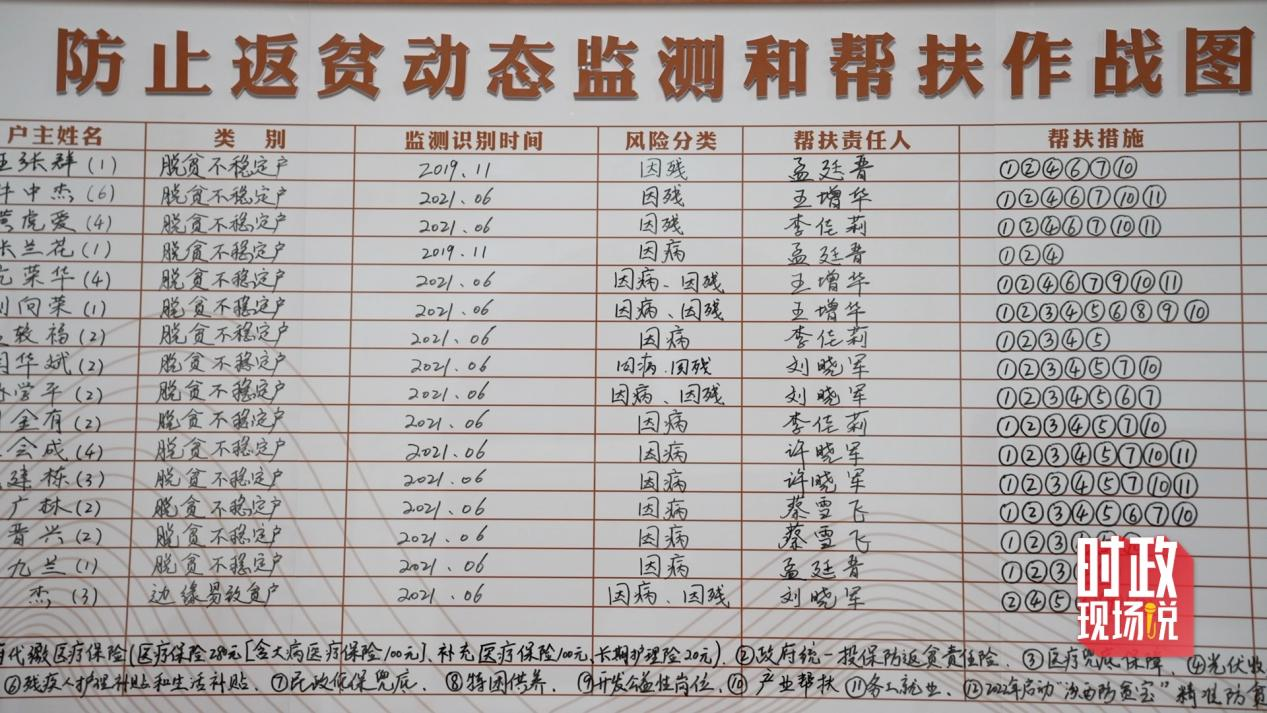 防止返贫动态监测和帮扶作战图
户主姓名 类 别 监测识别时间 风险分类 帮扶责任人 帮扶措施
张群(1) 脱贫不稳定户 2019.11 因残 孟廷晋 ①②④⑥⑦⑩
中杰(6) 脱贫不稳定户 2021.06 因残 王增华 ①②④⑥⑦⑩⑪
虎爱(4) 脱贫不稳定户 2021.06 因残 李佳莉 ①②④⑥⑦⑩⑪
兰花(1) 脱贫不稳定户 2019.11 因病 孟廷晋 ①②④
荣华(4) 脱贫不稳定户 2021.06 因病、因残 王增华 ①②④⑥⑦⑨⑩⑪
向荣(1) 脱贫不稳定户 2021.06 因病、因残 王增华 ①②③④⑤⑥⑧⑨⑩
较福(2) 脱贫不稳定户 2021.06 因病 李佳莉 ①②③④⑤
华斌(2) 脱贫不稳定户 2021.06 因病.因残 刘晓军 ①②③④⑤⑦⑩
学平(2) 脱贫不稳定户 2021.06 因病、因残 刘晓军 ①②③④⑤⑥⑦
金有(2) 脱贫不稳定户 2021.06 因病 李佳莉 ①②③④⑤⑦⑩
会成(4) 脱贫不稳定户 2021.06 因病 许晓军 ①②③④⑤⑦⑩⑪
建栋(3) 脱贫不稳定户 2021.06 因病 许晓军 ①②③④⑤⑦⑩⑪
广林(2) 脱贫不稳定户 2021.06 因病 蔡雪飞 ①②③④⑤⑥⑦⑩
晋兴(2) 脱贫不稳定户 2021.06 因病 蔡雪飞 ①②③
九兰(1) 脱贫不稳定户 2021.06 因病 孟廷晋 ①②③
杰(3) 边缘易致贫户 2021.06 因病、因残 刘晓军 ②④⑤
时政
现场说
代缴医疗保险(医疗保险280元[含大病医疗保险100元]、补充医疗保险100元、长期护理险20元). ②政府统一投保防返贫责任险. ③医疗兜底保障. ④光伏收
⑥残疾人护理补贴和生活补贴. ⑦民政低保兜底. ⑧特困供养. ⑨开发公益性岗位. ⑩产业帮扶 ⑪务工就业. ⑫2022年启动"汾西防贫宝"精准防贫